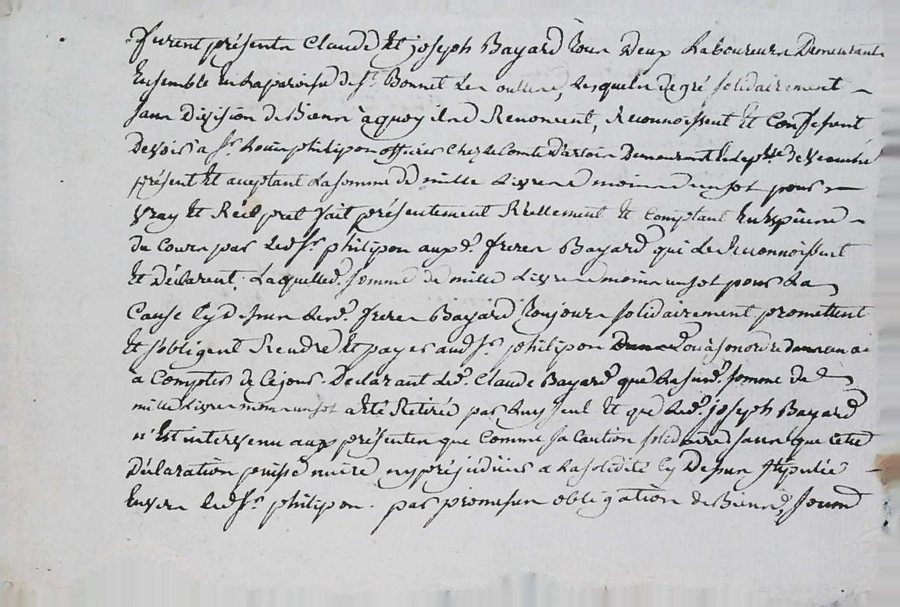 furent présents Claude Et joseph Bayard tous deux Laboureurs Demeurants
Ensemble En la paroisse de St. Bonnet Lesquels de gré solidairement
sans Division de Biens à quoy ils Renoncent, Reconnoissent Et Confessent
Devoir a Sr. philipon officier Chez le Comte D'artois Demeurant
présent Et aceptant La somme de mille Livres moins un sol pour
vray Et Réel pret fait présentement Réellement Et Comptant En Espèces
du Cours par Led. Sr. philipon auxd. freres Bayard qui Le Reconnoissent
Et Déclarent, Laquelled. somme de mille Livres moins un sol pour La
Cause Cy Dessus Lesd. freres Bayard toujours solidairement promettent
Et s'obligent Rendre Et payer aud. Sr. philipon ou a son ordre dans un an
a Compter de Cejour. Declarant Led. Claude Bayard que La susd. somme de
mille Livres moins un sol a Eté Retirée par Luy seul Et que Led. joseph Bayard
n'Est intervenu aux présentes que Comme sa Caution solidaire sans que Cette
Déclaration puisse nuire ny préjudicier a La solidité Cy Dessus stipulée
Envers Led. Sr. philipon. par promesses obligation de Biens,